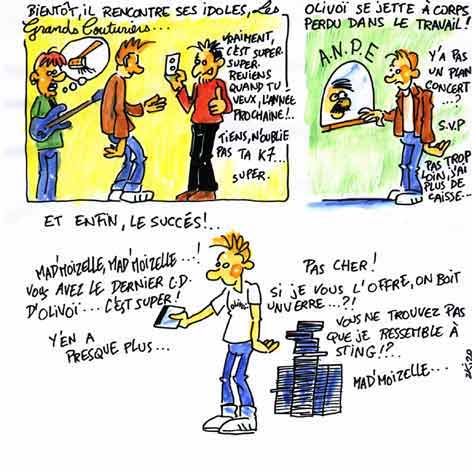 BIENTÔT, IL RENCONTRE SES IDOLES, Les
Grands Couturiers...
VRAIMENT,
C'EST SUPER.
SUPER.
REVIENS
QUAND TU
VEUX, L'ANNÉE
PROCHAINE!..
TIENS, N'OUBLIE
PAS TA K7...
SUPER.
OLIVOÏ SE JETTE À CORPS
PERDU DANS LE TRAVAIL!
A.N.P.E
Y'A PAS
UN PLAN
CONCERT
...?
S.V.P
PAS TROP
LOIN, J'AI
PLUS DE
CAISSE...
ET ENFIN, LE SUCCÉS!..
MAD'MOIZELLE, MAD'MOIZELLE...!
VOUS AVEZ LE DERNIER C.D.
D'OLIVOÏ... C'EST SUPER!
Y'EN A
PRESQUE PLUS...
PAS CHER!
SI JE VOUS L'OFFRE, ON BOIT
UN VERRE...?!
VOUS NE TROUVEZ PAS
QUE JE RESSEMBLE À
STING!?..
MAD'MOIZELLE...